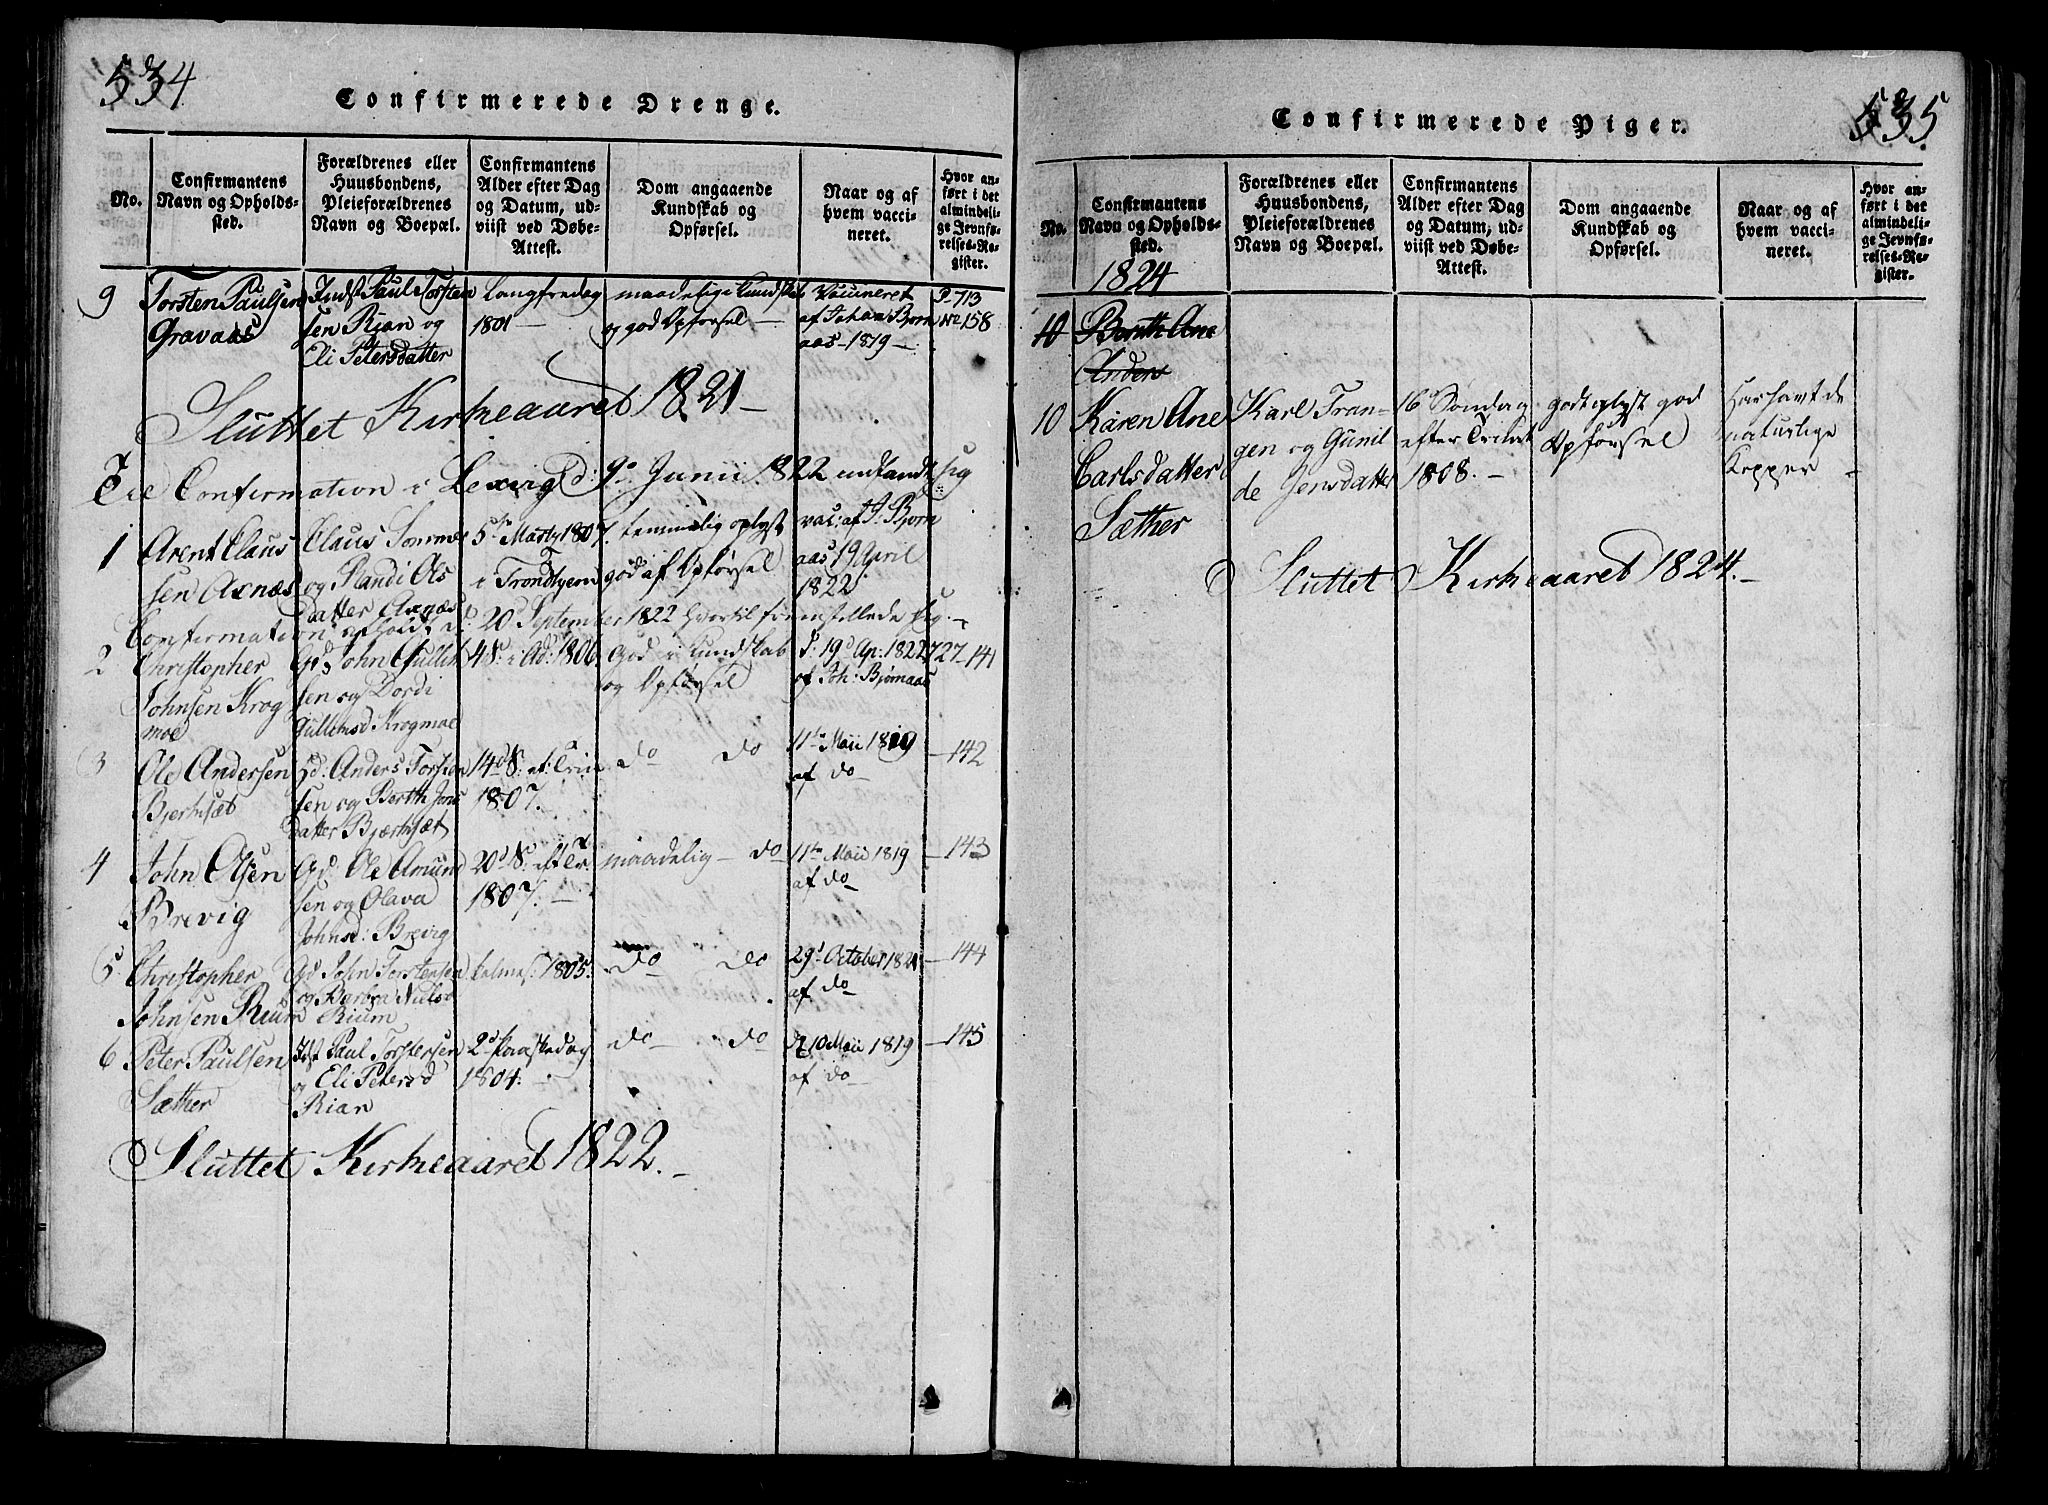 534
Confirmerede Drenge.
No.
Confirmantens
Navn og Opholds-
sted.
Forældrenes eller
Huusbondens,
Pleieforældrenes
Navn og Boepæl.
Confirmantens
Alder efter Dag
og Datum, ud-
viist ved Døbe-
Attest.
Dom angaaende
Kundskab og
Opførsel.
Naar og af
hvem vacci-
neret.
Hvor an-
ført i det
almindeli-
ge Jevnfø-
relses-Re-
gister.
9
Torsten Paulsen
Gravaas
Indst Paul Torsten
sen Rian og
Eli Petersdatter
Langfredag
1801 —
maadelig Kundskab
og god Opførsel —
Vaccineret
af Johan Bjørn
aas - 1819 —
P. 713
No 158
Sluttet Kirkeaaret 1821 —
Til Confirmation i Lexvig d: 9de Junii 1822 indfandt sig
1
Arent Claus
sen Axnæs
Claus Sommer
og Randi Ols
datter Axnæs
5te Marty 1807
i Trondhjem
temmelig oplyst
god af Opførsel
vac: af J. Bjørn
aas 19 April
1822
Confirmation afholdt d: 20d September 1822 hvortil fremstillede sig —
2
Christopher
Johnsen Krog
moe
Gd John Gullik
sen og Dordi
Gullensd Krogmoe
4 S: i Ad: 1806
God i Kundskab
og Opførsel
d: 19d Ap: 1822
af Joh: Bjørnaas
727-141
3
Ole Andersen
Bjerhsæt
Gd. Anders Torsten
sen og Berith Jons
datter Bjærhsæt
14de S: ef: Trin
1807. —
do do
11te Maii 1819
af do —
— 142
4
John Olsen
Brevig
Gd. Ole Amund
sen og Olava
Johnsd: Brevig
20d S: eft Tr
1807. —
maadelig — do
11te Maii 1819
af do —
— 143
5
Christopher
Johnsen Rium
Gd John Torstensen
og Barbra Nilsd
Rium
1805.
do do
29d October 1821
af do
— 144
6
Peter Paulsen
Sæther
Idst Paul Torstensen
og Eli Petersd
Rian
2d Paaskedag
1804. —
do — do
d 10 Maii 1819
af do
— 145
Sluttet Kirkeaaret 1822. —
535.
Confirmerede Piger.
No.
Confirmantens
Navn og Opholds-
sted.
Forældrenes eller
Huusbondens,
Pleieforældrenes
Navn og Boepæl.
Confirmantens
Alder efter Dag
og Datum, ud-
viist ved Døbe-
Attest.
Dom angaaende
Kundskab og
Opførsel.
Naar og af
hvem vacci-
neret.
Hvor an-
ført i det
almindeli-
ge Jevnfø-
relses-Re-
gister.
1824
10
Berith Ane
Anders
10
Karen Ane
Carlsdatter
Sæther
Karl Tran-
gen og Gunil
de Jensdatter
16d Søndag
efter Trinit
1808. —
godt oplyst god
Opførsel
Har havt de
naturlige
Kopper —
Sluttet Kirkeaaret 1824. —